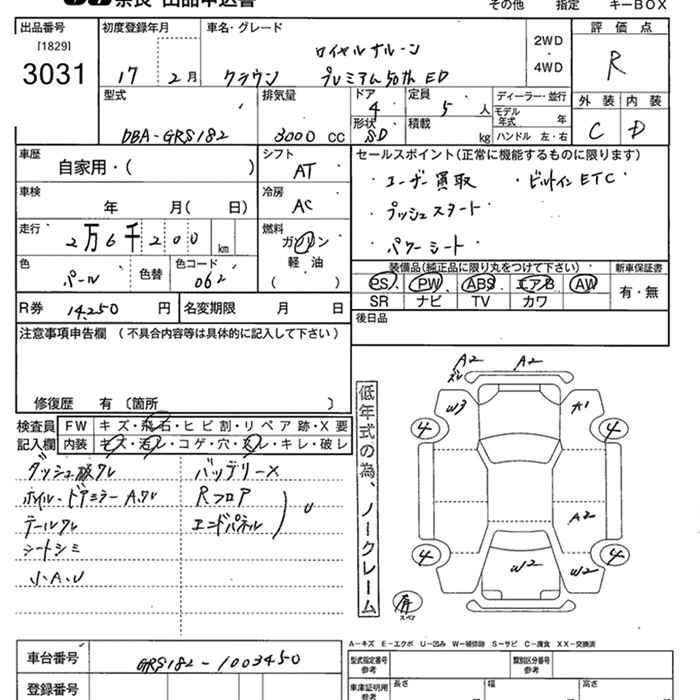 奈良 出品申込書
その他 指定 キーBOX
出品番号 初度登録年月 車名・グレード 評価点
[1829] ロイヤルサルーン 2WD
3031 17 2月 クラウン プレミアム50th ED 4WD R
型式 排気量 ドア 4 定員 5 人 ディーラー・並行 外装 内装
モデル年式 年
DBA-GRS182 3000 CC 形状 SD 積載 kg ハンドル 左・右 C D
車歴 自家用・( ) シフト AT セールスポイント(正常に機能するものに限ります)
・ユーザー買取 ・ビルトインETC
車検 年 月( 日) 冷房 AC ・プッシュスタート
走行 2万6千200 km 燃料 ガソリン ・パワーシート
色 パール 色替 色コード 062 軽油 ( )
装備品(純正品に限り丸をつけて下さい) 新車保証書
PS PW ABS エアB AW 有・無
SR ナビ TV カワ
R券 14,250 円 名変期限 月 日 後日品
注意事項申告欄 (不具合内容等は具体的に記入して下さい)
修復歴 有〔箇所 〕
検査員 FW キズ・飛石・ヒビ割・リペア跡・X要
記入欄 内装 キズ・汚レ・コゲ・穴・スレ・キレ・破レ
ダッシュ板クレ バッテリーX
ホイル・ドアミラーA,クレ Rフロア
テールクレ エンドパネル U
シートシミ
小A.U
低年式の為、ノークレーム
A2 A2
ズレ
W3 A1
4 4
A2
4 4
W2 W2
スペア
A-キズ E-エクボ U-凹み W-補修跡 S-サビ C-腐食 XX-交換済
車台番号 GRS182-1003450 型式指定番号 参考 類別区分番号 参考
登録番号 車庫証明用 参考 長さ 幅 高さ